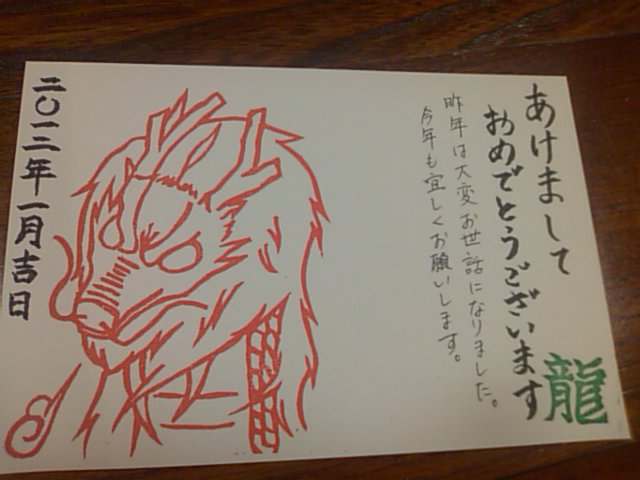 あけまして
おめでとうございます
龍
昨年は大変お世話になりました。
今年も宜しくお願いします。
二〇一二年一月吉日